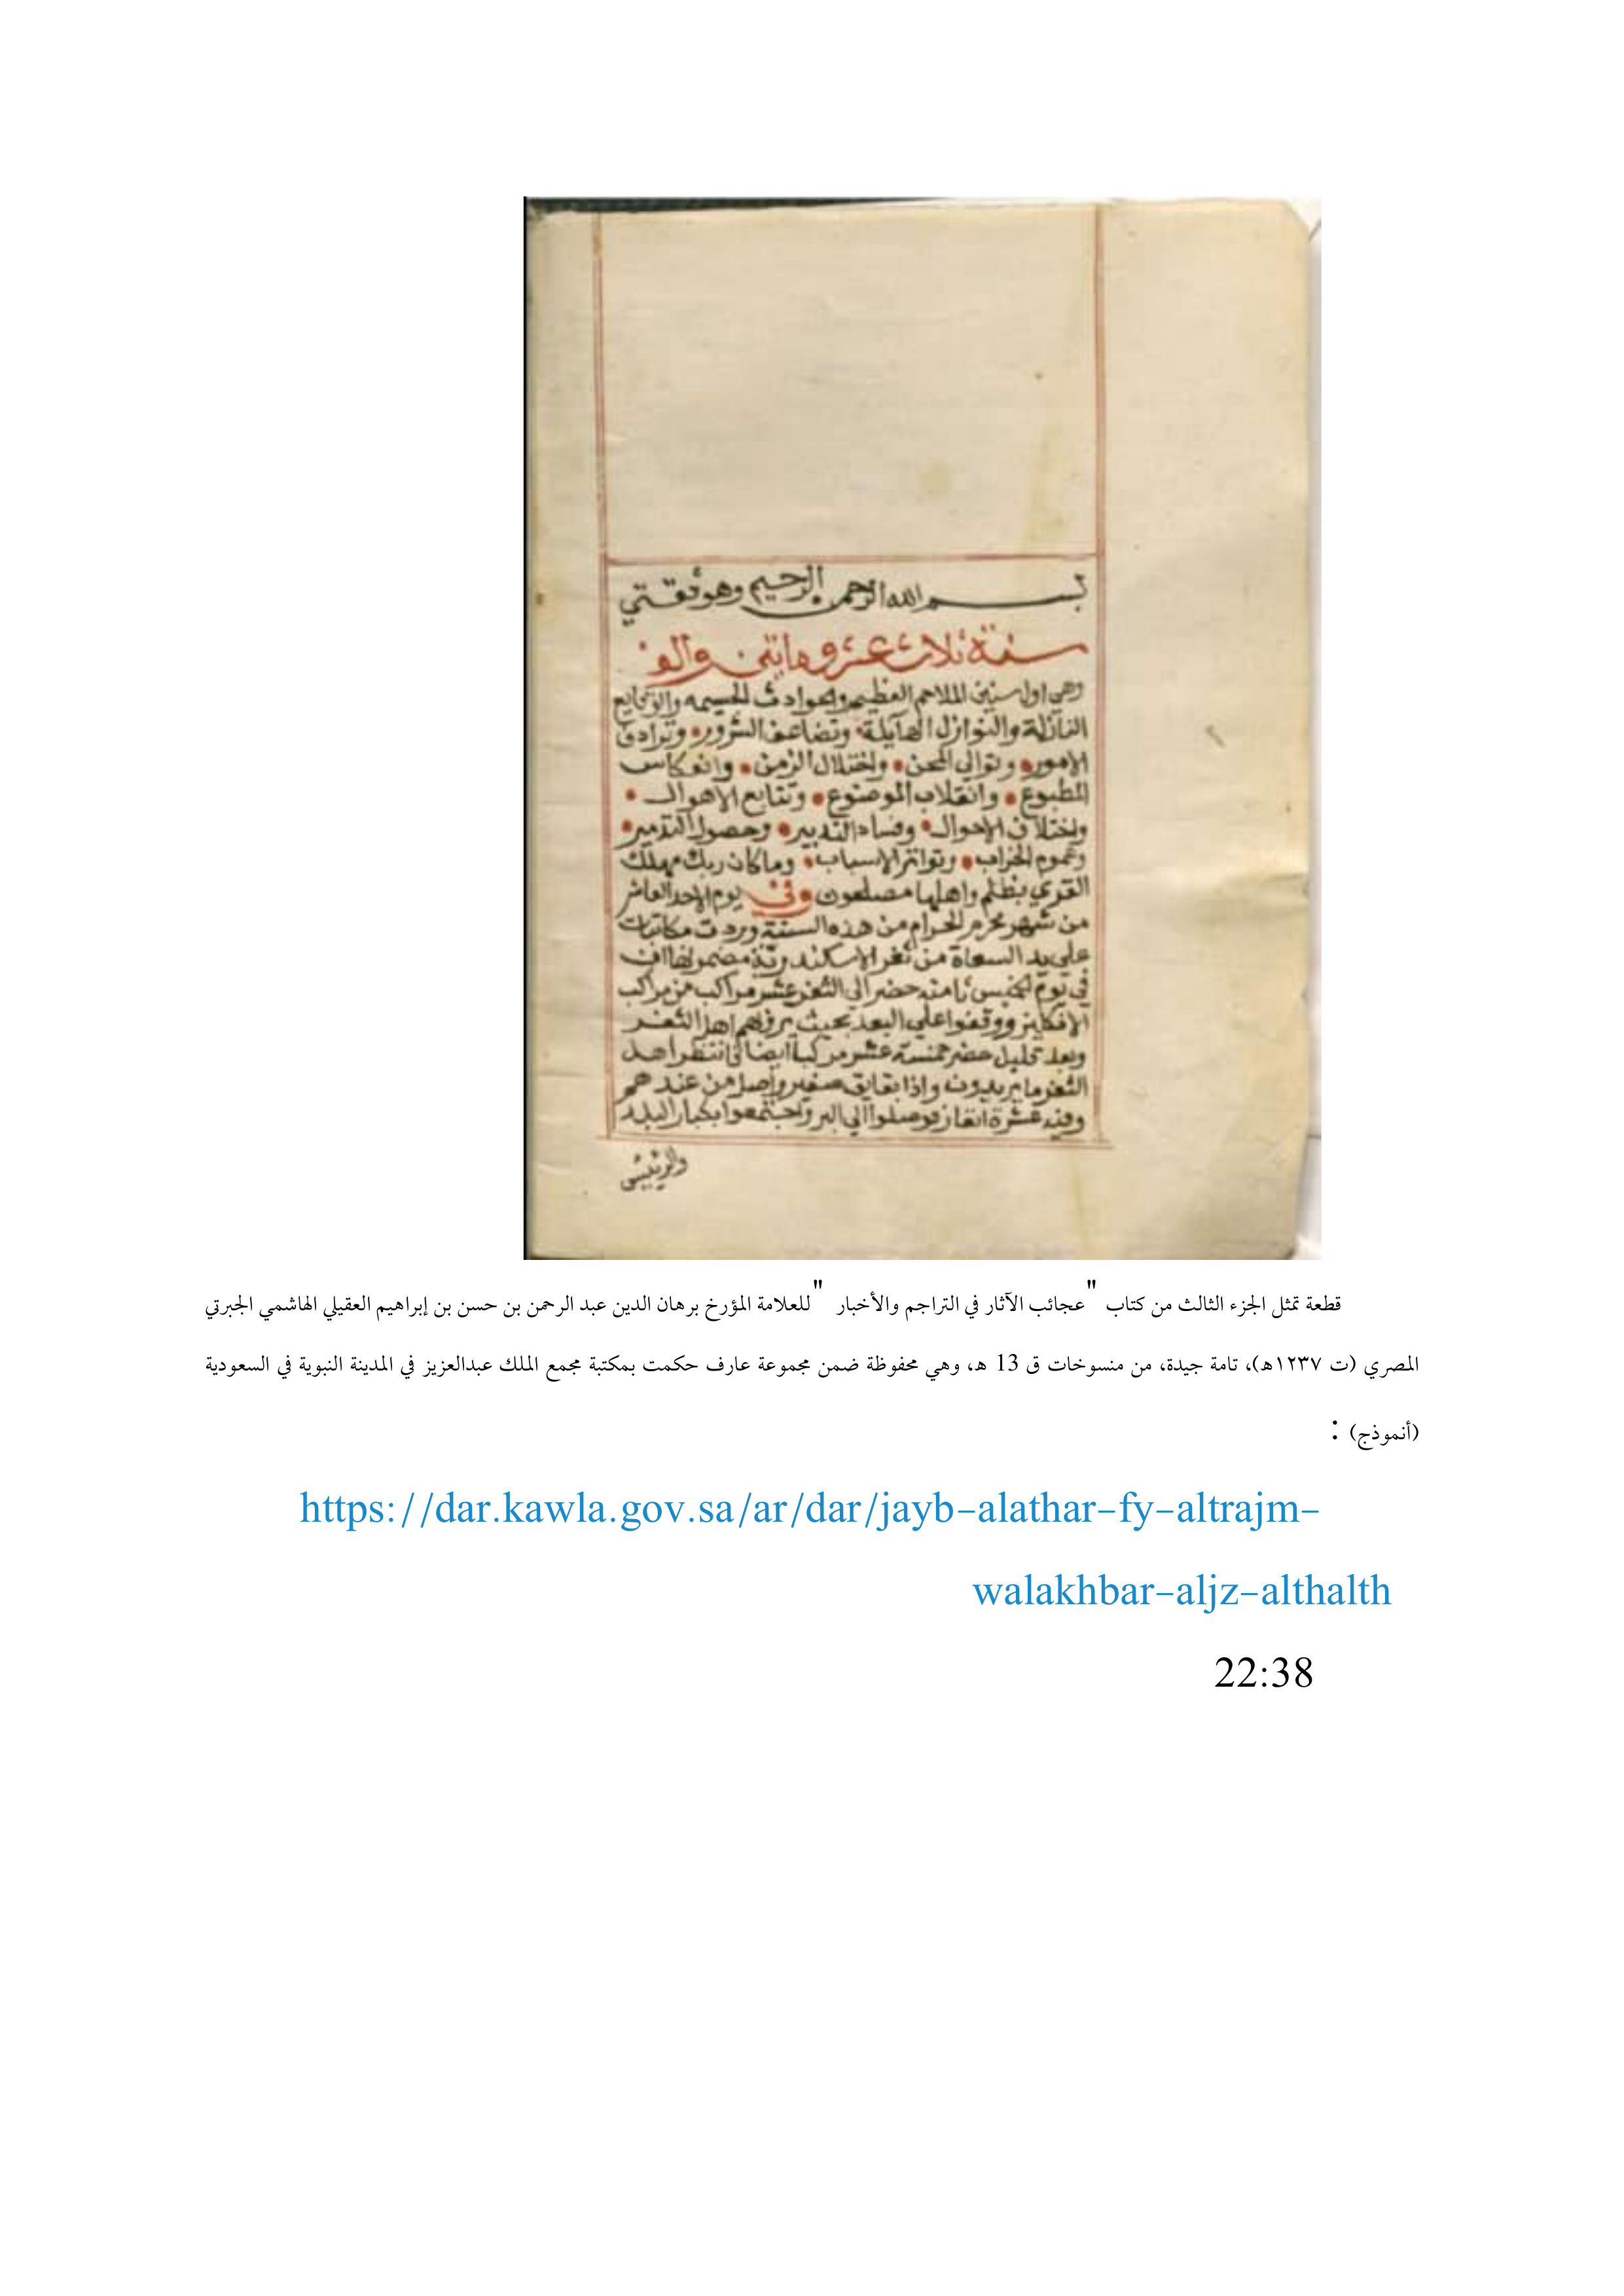 بسم الله الرحمن الرحيم وهو ثقتي
سنة ثلاث عشر ومايتين والف
وهي اول سنين الملاحم العظيمه والحوادث الجسيمه والوقايع
النازلة والنوازل الهايلة وتضاعف الشرور وترادف
الامور وتوالي المحن واختلال الزمن وانعكاس
المطبوع وانقلاب الموضوع وتتابع الاهوال
واختلاف الاحوال وفساد التدبير وحصول التدمير
وعموم الخراب وتواتر الاسباب وما كان ربك مهلك
القري بظلم واهلها مصلحون وفي يوم الاحد العاشر
من شهر محرم الحرام من هذه السنة وردت مكاتبات
على يد السعاة من ثغر الاسكندرية مضمونها ان
في يوم الخميس ثامنه حضر الى الثغر عشر مراكب من مراكب
الانكليز ووقفوا على البعد بحيث يروهم اهل الثغر
وبعد قليل حضر خمسة عشر مركبا ايضا فانتظر اهل
الثغر ما يريدون واذا بقايق صغير واصل من عندهم
وفيه عشرة انفار فوصلوا الي البر واجتمعوا بكبار البلد
والرئيس
قطعة تمثل الجزء الثالث من كتاب "عجائب الآثار في التراجم والأخبار "للعلامة المؤرخ برهان الدين عبد الرحمن بن حسن بن إبراهيم العقيلي الهاشمي الجبرتي
المصري (ت ١٢٣٧هـ)، تامة جيدة، من منسوخات ق 13 هـ، وهي محفوظة ضمن مجموعة عارف حكمت بمكتبة مجمع الملك عبدالعزيز في المدينة النبوية في السعودية
(أنموذج) :
https://dar.kawla.gov.sa/ar/dar/jayb-alathar-fy-altrajm-
walakhbar-aljz-althalth
22:38